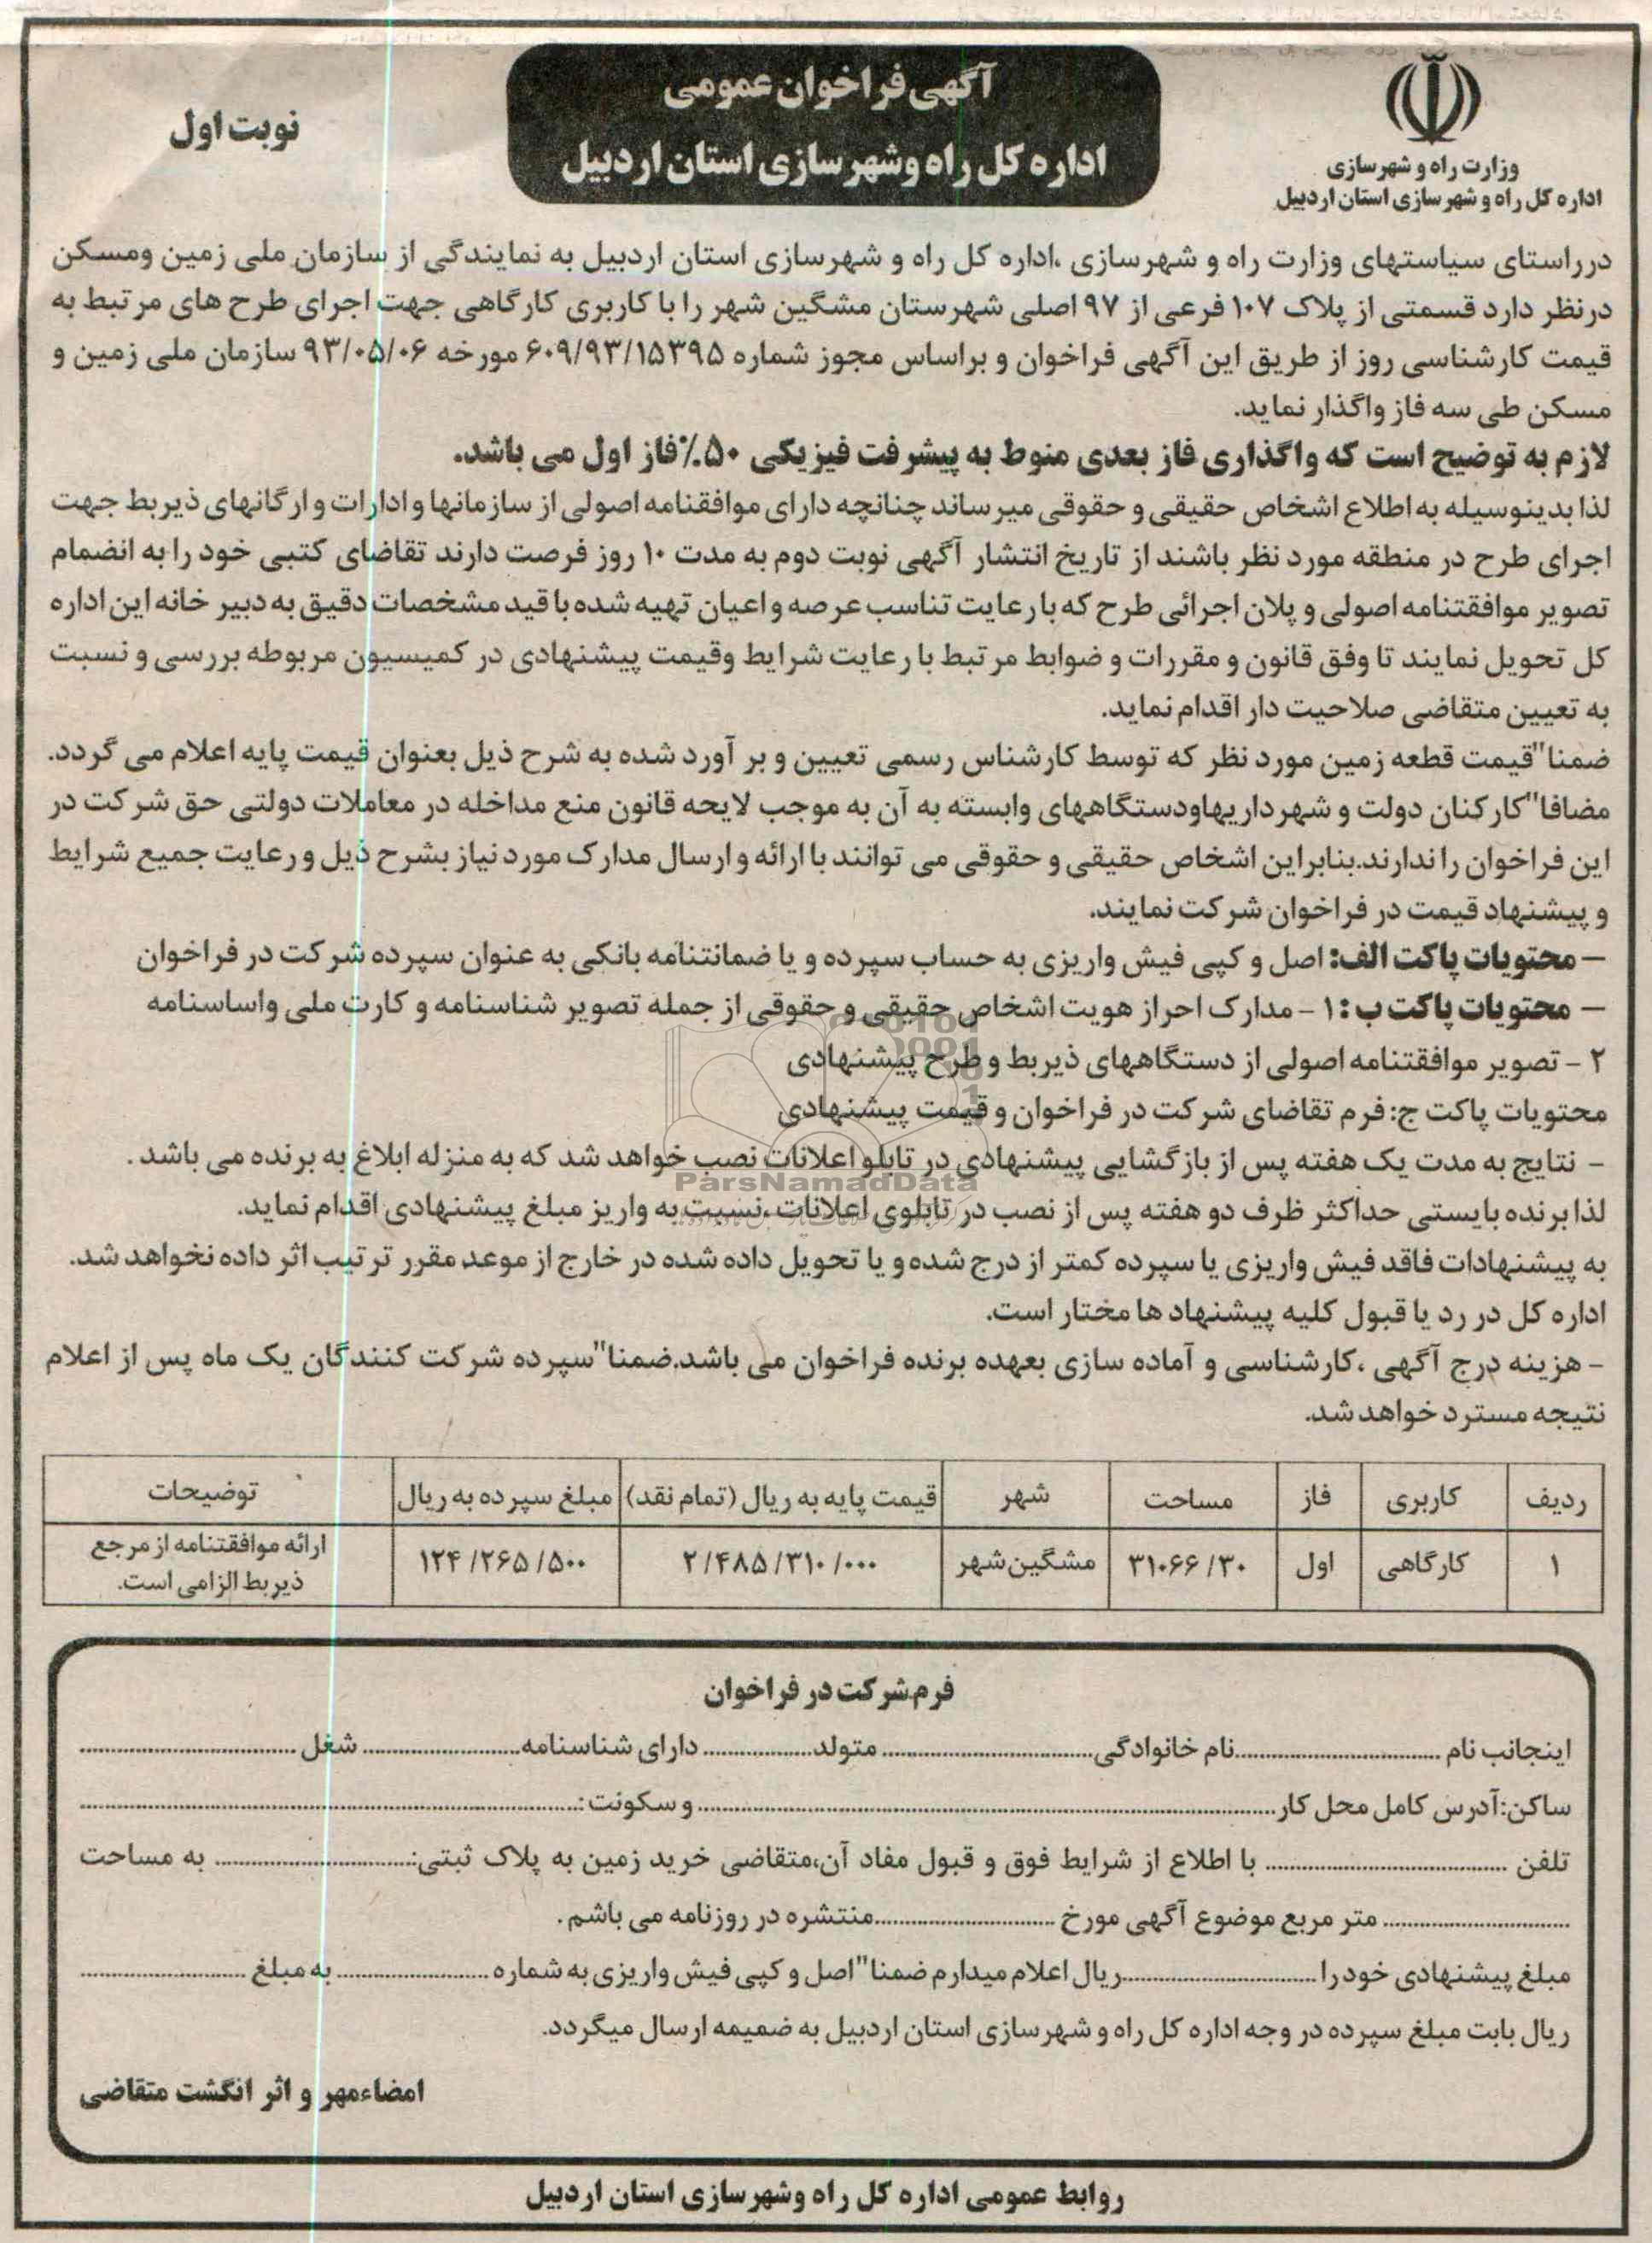 وزارت راه و شهرسازی
اداره کل راه و شهرسازی استان اردبیل
آگهی فراخوان عمومی
اداره کل راه وشهرسازی استان اردبیل
نوبت اول
درراستای سیاستهای وزارت راه و شهرسازی ،اداره کل راه و شهرسازی استان اردبیل به نمایندگی از سازمان ملی زمین ومسکن
درنظر دارد قسمتی از پلاک ۱۰۷ فرعی از ۹۷ اصلی شهرستان مشگین شهر را با کاربری کارگاهی جهت اجرای طرح های مرتبط به
قیمت کارشناسی روز از طریق این آگهی فراخوان و براساس مجوز شماره ۶۰۹/۹۳/۱۵۳۹۵ مورخه ۹۳/۰۵/۰۶ سازمان ملی زمین و
مسکن طی سه فاز واگذار نماید.
لازم به توضیح است که واگذاری فاز بعدی منوط به پیشرفت فیزیکی ۵۰٪فاز اول می باشد.
لذا بدینوسیله به اطلاع اشخاص حقیقی و حقوقی میرساند چنانچه دارای موافقتنامه اصولی از سازمانها و ادارات و ارگانهای ذیربط جهت
اجرای طرح در منطقه مورد نظر باشند از تاریخ انتشار آگهی نوبت دوم به مدت ۱۰ روز فرصت دارند تقاضای کتبی خود را به انضمام
تصویر موافقتنامه اصولی و پلان اجرائی طرح که با رعایت تناسب عرصه و اعیان تهیه شده با قید مشخصات دقیق به دبیر خانه این اداره
کل تحویل نمایند تا وفق قانون و مقررات و ضوابط مرتبط با رعایت شرایط وقیمت پیشنهادی در کمیسیون مربوطه بررسی و نسبت
به تعیین متقاضی صلاحیت دار اقدام نماید.
ضمنا"قیمت قطعه زمین مورد نظر که توسط کارشناس رسمی تعیین و بر آورد شده به شرح ذیل بعنوان قیمت پایه اعلام می گردد.
مضافا"کارکنان دولت و شهرداریهاودستگاههای وابسته به آن به موجب لایحه قانون منع مداخله در معاملات دولتی حق شرکت در
این فراخوان را ندارند.بنابراین اشخاص حقیقی و حقوقی می توانند با ارائه و ارسال مدارک مورد نیاز بشرح ذیل و رعایت جمیع شرایط
و پیشنهاد قیمت در فراخوان شرکت نمایند.
– محتویات پاکت الف: اصل و کپی فیش واریزی به حساب سپرده و یا ضمانتنامه بانکی به عنوان سپرده شرکت در فراخوان
– محتویات پاکت ب : ۱ – مدارک احراز هویت اشخاص حقیقی و حقوقی از جمله تصویر شناسنامه و کارت ملی واساسنامه
۲ – تصویر موافقتنامه اصولی از دستگاههای ذیربط و طرح پیشنهادی
محتویات پاکت ج: فرم تقاضای شرکت در فراخوان و قیمت پیشنهادی
– نتایج به مدت یک هفته پس از بازگشایی پیشنهادی در تابلو اعلانات نصب خواهد شد که به منزله ابلاغ به برنده می باشد .
ParsNamadData
لذا برنده بایستی حداکثر ظرف دو هفته پس از نصب در تابلوی اعلانات ،نسبت به واریز مبلغ پیشنهادی اقدام نماید.
به پیشنهادات فاقد فیش واریزی یا سپرده کمتر از درج شده و یا تحویل داده شده در خارج از موعد مقرر ترتیب اثر داده نخواهد شد.
اداره کل در رد یا قبول کلیه پیشنهاد ها مختار است.
– هزینه درج آگهی ،کارشناسی و آماده سازی بعهده برنده فراخوان می باشد.ضمنا"سپرده شرکت کنندگان یک ماه پس از اعلام
نتیجه مسترد خواهد شد.
ردیف کاربری فاز مساحت شهر قیمت پایه به ریال (تمام نقد) مبلغ سپرده به ریال توضیحات
۱ کارگاهی اول ۳۱۰۶۶/۳۰ مشگین شهر ۲/۴۸۵/۳۱۰/۰۰۰ ۱۲۴/۲۶۵/۵۰۰ ارائه موافقتنامه از مرجع
ذیربط الزامی است.
فرم شرکت در فراخوان
اینجانب نام ........................نام خانوادگی........................ متولد................ دارای شناسنامه.................... شغل ........................
ساکن:آدرس کامل محل کار........................................................ و سکونت:........................................................
تلفن ........................ با اطلاع از شرایط فوق و قبول مفاد آن،متقاضی خرید زمین به پلاک ثبتی:........................ به مساحت
........................ متر مربع موضوع آگهی مورخ ........................منتشره در روزنامه می باشم .
مبلغ پیشنهادی خود را ........................ریال اعلام میدارم ضمنا"اصل و کپی فیش واریزی به شماره .................... به مبلغ ....................
ریال بابت مبلغ سپرده در وجه اداره کل راه و شهرسازی استان اردبیل به ضمیمه ارسال میگردد.
امضاءمهر و اثر انگشت متقاضی
روابط عمومی اداره کل راه وشهرسازی استان اردبیل